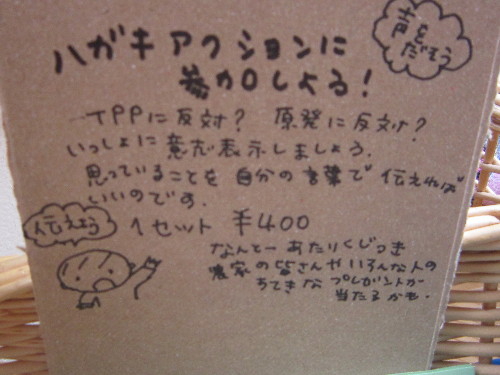 ハガキアクションに
参加しよう!
声を
だそう
TPPに反対? 原発に反対?
いっしょに意志表示しましょう.
思っていることを自分の言葉で伝えれば
いいのです.
伝えよう
1セット ¥400
なんとーあたりくじつき
農家の皆さんやいろんな人の
すてきなプレゼントが
当たるかも.